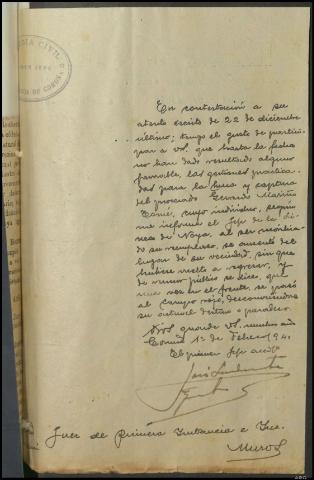 GUARDIA CIVIL
En contestación a su
atento escrito de 22 de diciembre
último; tengo el gusto de partici-
par a Vd. que hasta la fecha
no han dado resultado alguno
favorable, las gestiones practica-
das para la busca y captura
del procesado Gerardo Mariño
Tomé, cuyo individuo, según
me informa el Jefe de la lí-
nea de Noya, al ser movili
do su reemplazo, se ausentó del
lugar de su vecindad, sin que
hubiese vuelto a regresar, y
de rumor público se dice, que
una vez en el frente, se pasó
al campo rojo, desconociendose
su actual destino o paradero.
Dios guarde Vd. muchos años
Coruña 1º de Febrero 1941.
El primer Jefe acctal
Juez de Primera Instancia e Ins.
Muros